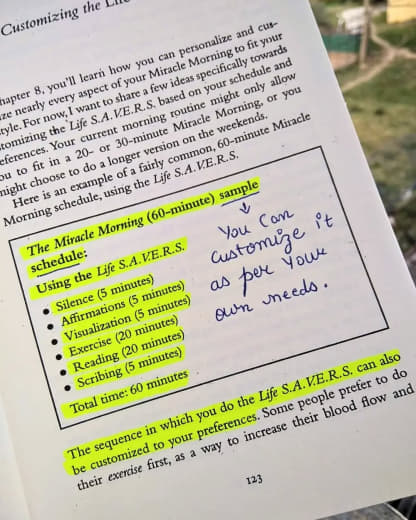 Customizing the
hapter 8, you'll learn how you can personalize and cus-
ze nearly every aspect of your Miracle Morning to fit your
tyle. For now, I want to share a few ideas specifically towards
tomizing the Life S.A.V.E.R.S. based on your schedule and
eferences. Your current morning routine might only allow
ou to fit in a 20- or 30-minute Miracle Morning, or you
night choose to do a longer version on the weekends.
Here is an example of a fairly common, 60-minute Miracle
Morning schedule, using the Life S.A.V.E.R.S.
The Miracle Morning (60-minute) sample
schedule:
Using the Life S.A.V.E.R.S.
• Silence (5 minutes)
• Affirmations (5 minutes)
• Visualization (5 minutes)
• Exercise (20 minutes)
• Reading (20 minutes)
• Scribing (5 minutes)
Total time: 60 minutes
You Can
Customize it
as per Your
own needs.
The sequence in which you do the Life S.A.V.E.R.S. can also
be customized to your preferences. Some people prefer to do
their exercise first, as a way to increase their blood flow and
123